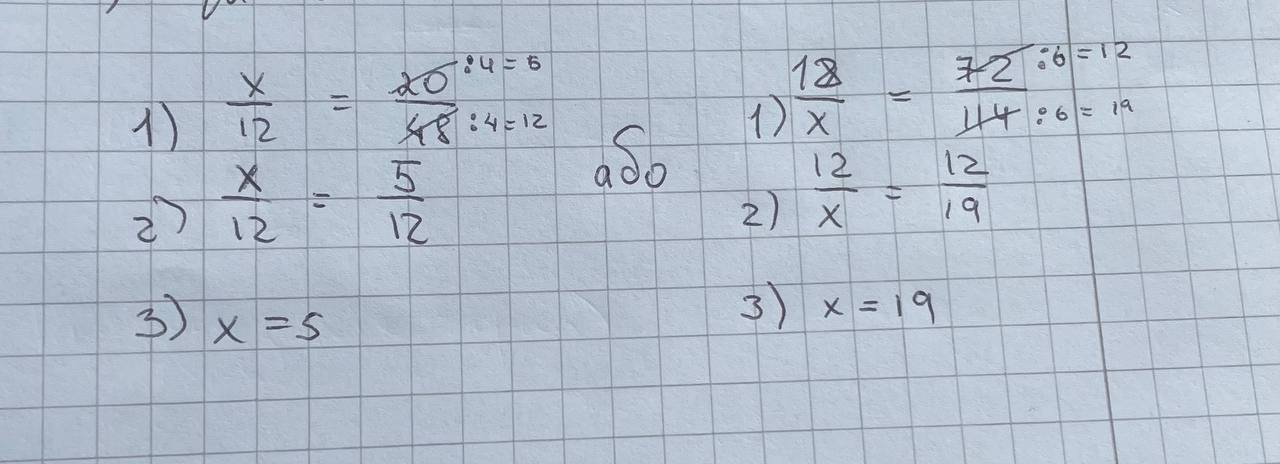 1) x/12 = 20/48 :4=5 :4=12
2) x/12 = 5/12
3) x = 5
або
1) 12/x = 72/114 :6=12 :6=19
2) 12/x = 12/19
3) x = 19